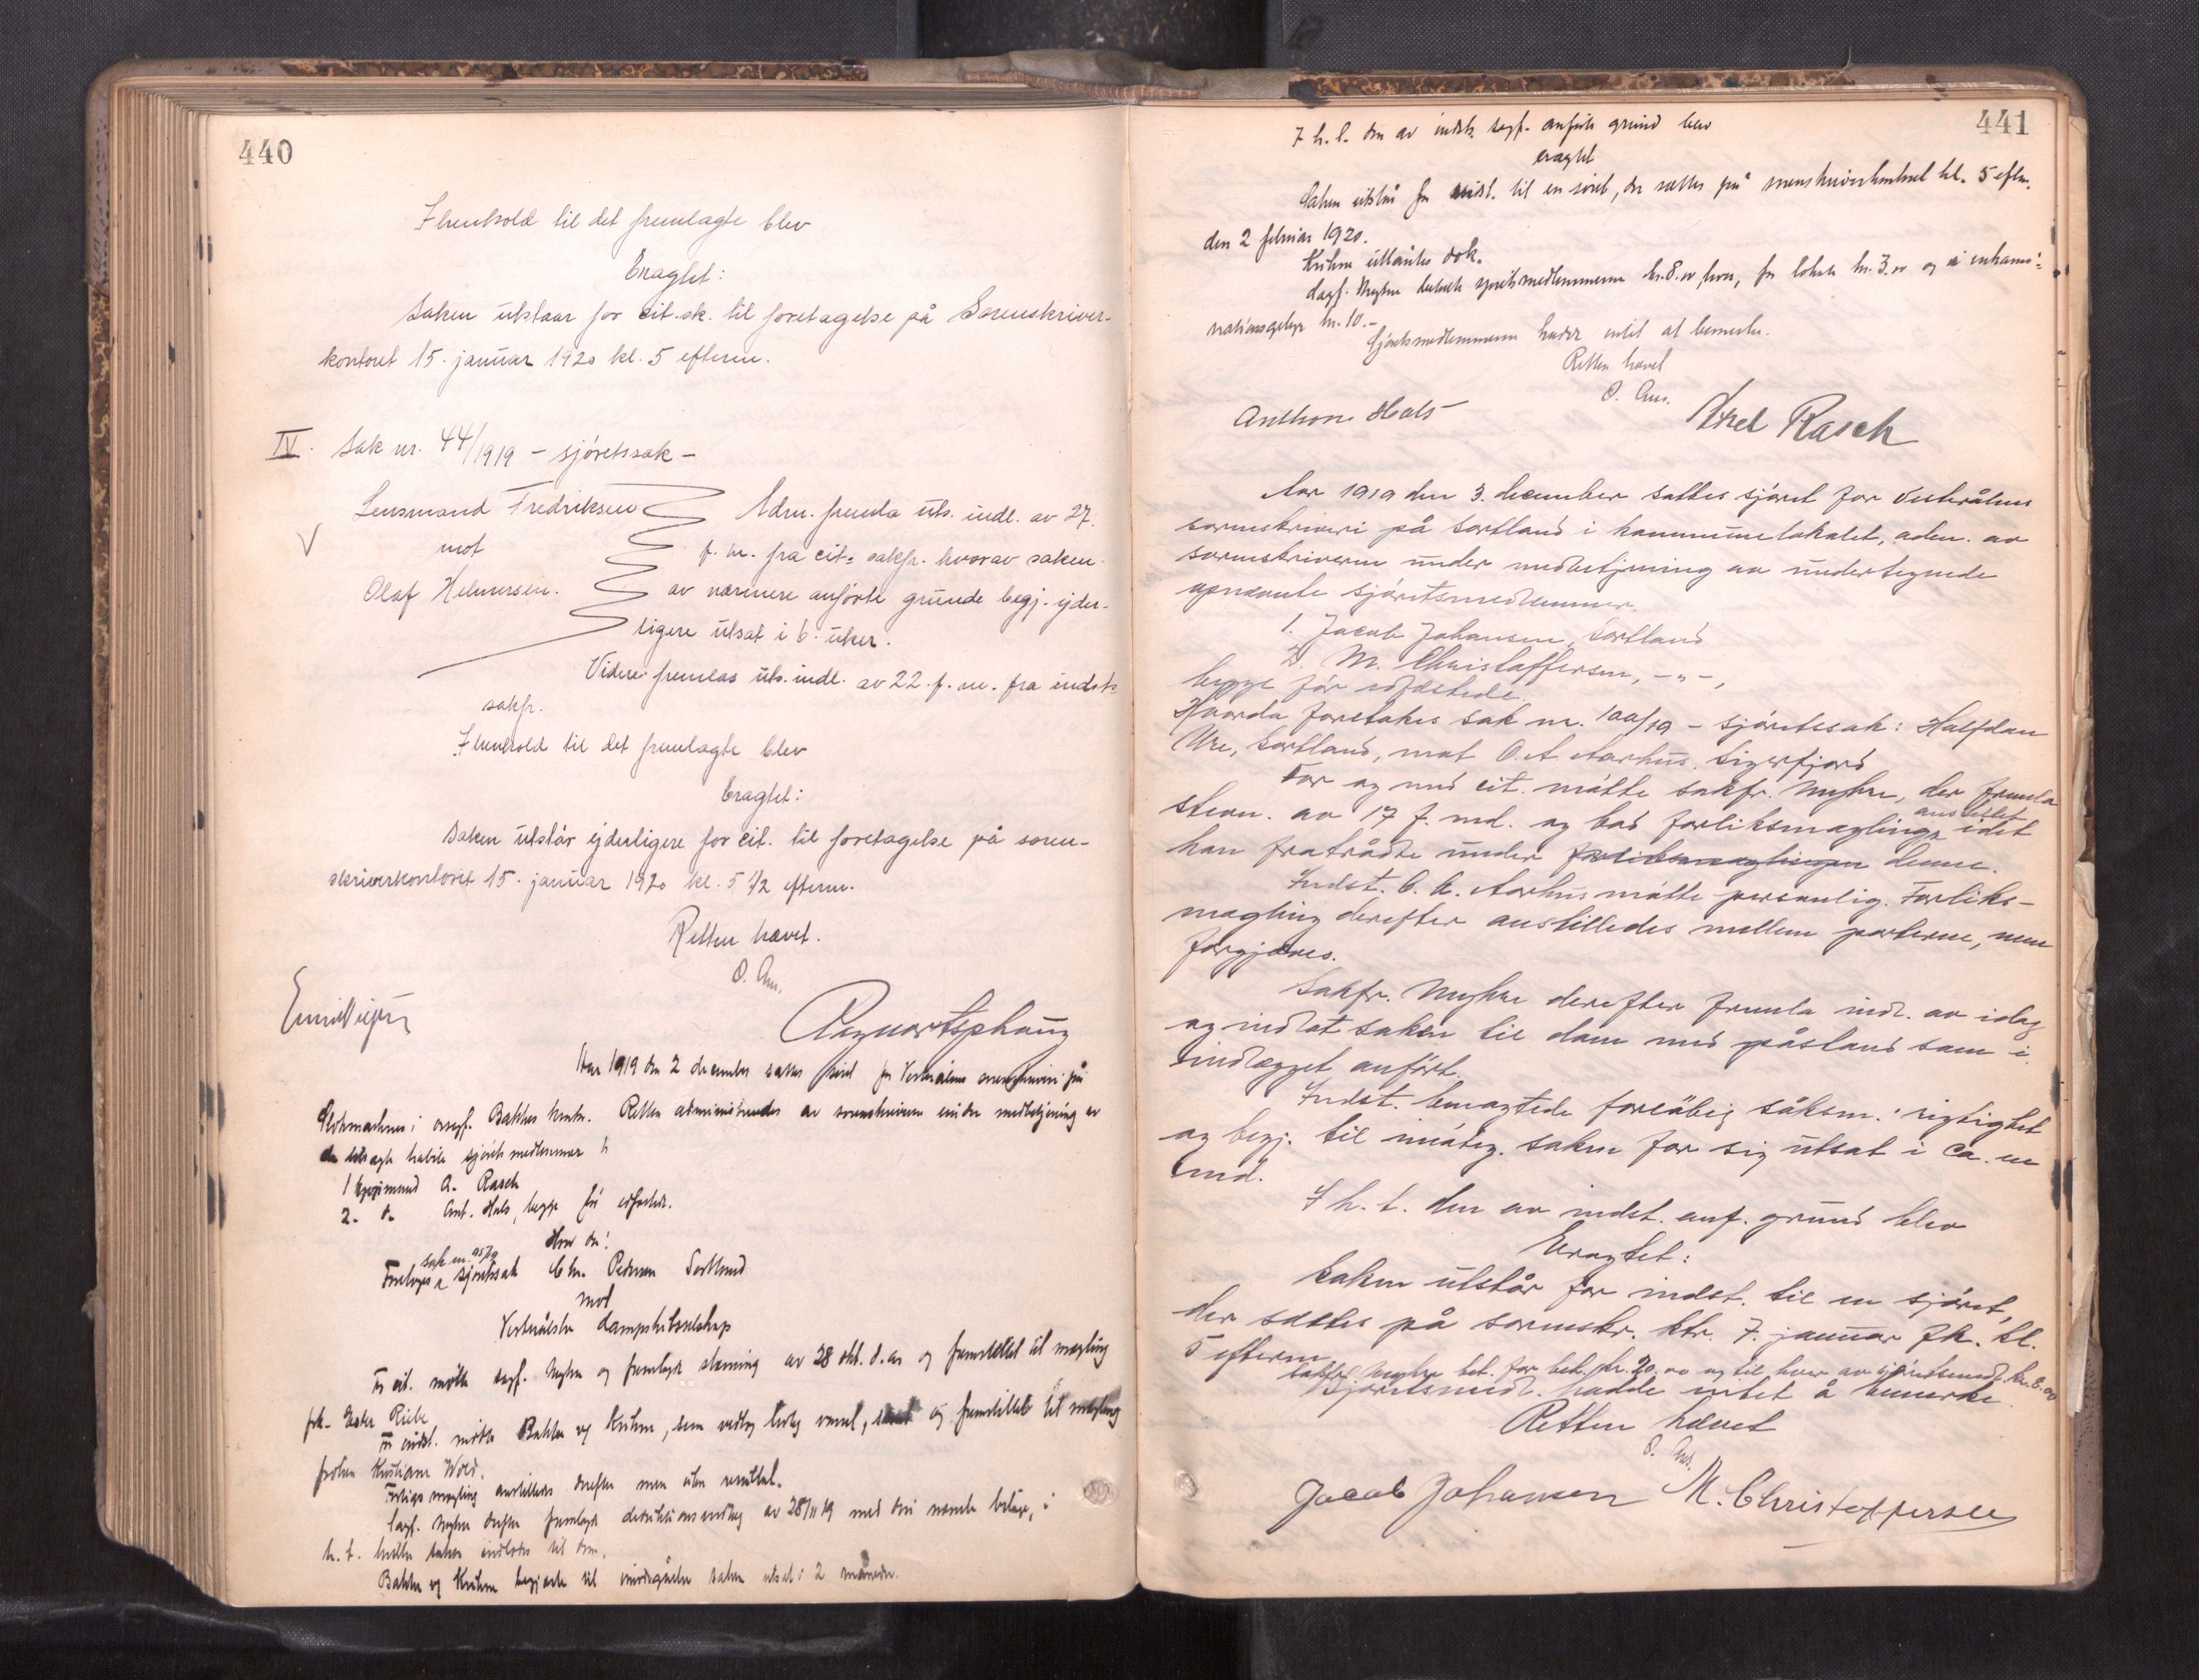 440
I henhold til det fremlagte blev
Eragtet:
Saken utstaar for cit. sk. til foretagelse på Sorenskriver-
kontoret 15. januar 1920 kl. 5 efterm.
IV. Sak nr. 44/1919 - sjöretssak -
Lensmand Fredriksen
mot
Olaf Helmersen.
V
Adm. fremla uts. indl. av 27.
f. m. fra cit. sakfr. hvorav saken
av nærmere anførte grunde begj. yder-
ligere utsat i 6 uker.
Videre fremlas uts. indl. av 22. f. m. fra indst.
sakfr.
I henhold til det fremlagte blev
Eragtet:
Saken utstår yderligere for cit. til foretagelse på soren-
skriverkontoret 15. januar 1920 kl. 5 1/2 efterm.
Retten hævet.
Aar 1919 den 2 december sattes sjøret for Vesterålens sorenskriveri på
Stokmarknes i overrsf. Bakkes kontor. Retten administreredes av sorenskriveren under medbetjening av
de tilsagte habile sjöretsmedlemmer
1 kjøpmand A. Rasch
2. do Ant. Hals, begge før edfæstede.
Hvor da:
Foretoges sak nr. 95/19 sjöretssak Chr. Pedersen Sortland
mod
Vesterålske Dampskibsselskap
For cit. møtte sagf. Myhre og fremlagde stevning av 28 okt. d. aa og fremstillet til mægling
frk. Ester Riebe
For indst. møtte Bakke og Krihne, som vedtog lovlig varsel, samt og fremstillet til mægling
frøken Kristiane Wold.
Forligsmægling anstilledes derefter men uten resultat.
Sagf. Myhre derefter fremlagde deduktionsindlæg av 28/11 19 med deri nævnte bilage, i
h. t. hvilke saken indlodes til dom.
Bakke og Krihne begjærte til imøtegåelse saken utsat i 2 måneder.
441
I h. t. den av indst. sagf. anførte grund blev
eragtet
Saken utstår for indst. til en sjøret, der sættes på sorenskriverkontoret kl. 5 eftm.
den 2 februar 1920.
Krihne utlåntes dok.
Sagf. Myhre betalte sjøretsmedlemmerne kr. 8.00 hver, for lokale kr. 3.00 og inkami-
nationsgebyr kr. 10.-
Sjøretsmedlemmerne hadde intet at bemerke.
Retten hævet
Anthon Hals
Axel Rasch
Aar 1919 den 3. december sattes sjöret for Vesterålens
sorenskriveri på Sortland i kommunelokalet, adm. av
sorenskriveren under medbetjening av undertegnede
opnævnte sjöretsmedlemmer.
1. Jacob Johansen, Sortland
2. M. Christoffersen, - " -,
begge för edfæstede.
Hvorda foretokes sak nr. 100/19 - sjöretssak: Halfdan
Ure, Sortland, mot O. A Aarhus, Sigerfjord
For og med cit. mötte sakfr. Myhre, der fremla
stevn. av 17 f. md. og bad forliksmægling anstillet idet
han fratrådte under forliksmæglingen denne.
Indst. O. A. Aarhus mötte personlig. Forliks-
mægling derefter anstilledes mellem parterne, men
forgjæves.
Sakfr. Myhre derefter fremla indl. av idag
og indlot saken til dom med påstand som i
indlægget anfört.
Indst. benægtede foreløbig söksm.' rigtighet
og begj. til imöteg. saken for sig utsat i ca. en
md.
I h. t. den av indst. anf. grund blev
Eragtet:
Saken utstår for indst. til en sjöret,
der sættes på sorenskr. ktr. 7. januar fk. kl.
5 efterm
Sakfr. Myhre bet. for bek. kr. 20.00 og til hver av sjöretsmedl. kr. 8.00
Sjöretsmedl. hadde intet å bemerke.
Retten hævet
Jacob Johansen M. Christoffersen